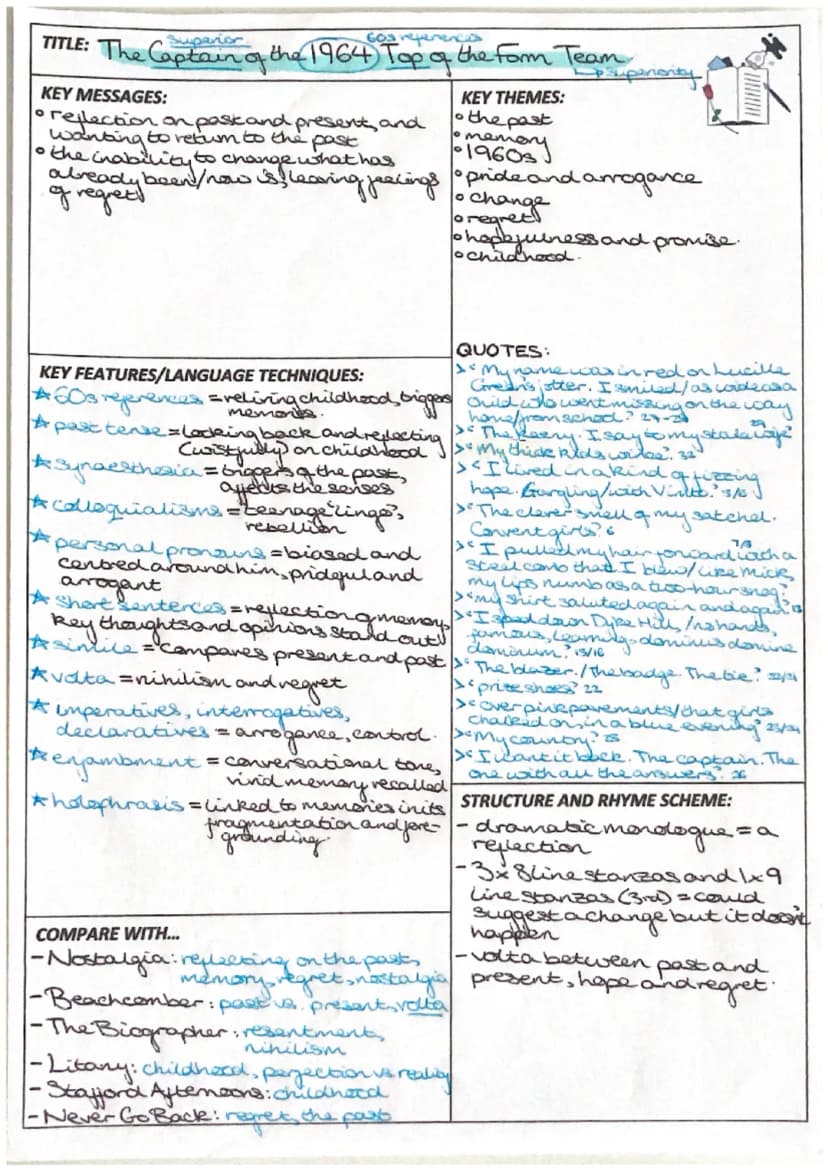 superior
60s references
TITLE: The Captain of the 1964 Top of the Form Team
↳superiority
KEY MESSAGES:
• reflection on past and present, and
wanting to return to the past
• the inability to change what has
already been/now is, leaving feelings
of regret
KEY THEMES:
• the past
• memory
• 1960s
• pride and arrogance
• change
• regret
• hopefulness and promise.
• childhood.
KEY FEATURES/LANGUAGE TECHNIQUES:
☆ 60s references = reliving childhood, triggers
memories.
☆ past tense = looking back and reflecting
(wistfully) on childhood
☆ synaesthesia = triggers of the past,
affects the senses
☆ colloquialisms = teenage 'lingo',
rebellion
☆ personal pronouns = biased and
centred around him, prideful and
arrogant
☆ short sentences = reflection of memory,
key thoughts and opinions stand out
☆ simile = compares present and past
☆ volta = nihilism and regret
☆ imperatives, interrogatives,
declaratives = arrogance, control.
☆ enjambment = conversational tone,
vivid memory recalled
☆ holophrasis = linked to memories in its
fragmentation and fore-
grounding.
QUOTES:
> 'My name was in red on Lucille
Green's jotter. I smiled/as wide as a
child who went missing on the way
home/from school.' 27-29
> 'The Keeny. I say to my stale wife'
> 'My thick kids wince.' 32
> 'I lived in a kind of fizzing
hope. Gargling/with Vimto.' 5/6
> 'The clever smell of my satchel.
Convent girls' 6
> 'I pulled my hair forward with a
steel comb that I blew/like Mick,
my lips numb as a two-hour snog.' 7/8
> 'my shirt saluted again and again'
> 'I sped down Dyke Hill,/no hands,
famous, learning, dominus domine
dominum.' 15/16
> 'The blazer./The badge. The tie.'
> 'prize shoes' 22
> 'over pink pavements/that girls
chalked on, in a blue evening' 23/24
> 'My country'
> 'I want it back. The captain. The
one with all the answers'. 26
STRUCTURE AND RHYME SCHEME:
- dramatic monologue = a
reflection
- 3 x 8 line stanzas and 1 x 9
line stanzas (3rd) = could
suggest a change but it doesn't
happen
- volta between past and
present, hope and regret.
COMPARE WITH...
- Nostalgia: reflecting on the past,
memory, regret, nostalgia
- Beachcomber: past vs. present, volta
- The Biographer: resentment,
nihilism
- Litany: childhood, perfection vs reality
- Stafford Afternoons: childhood
- Never Go Back: regret, the past